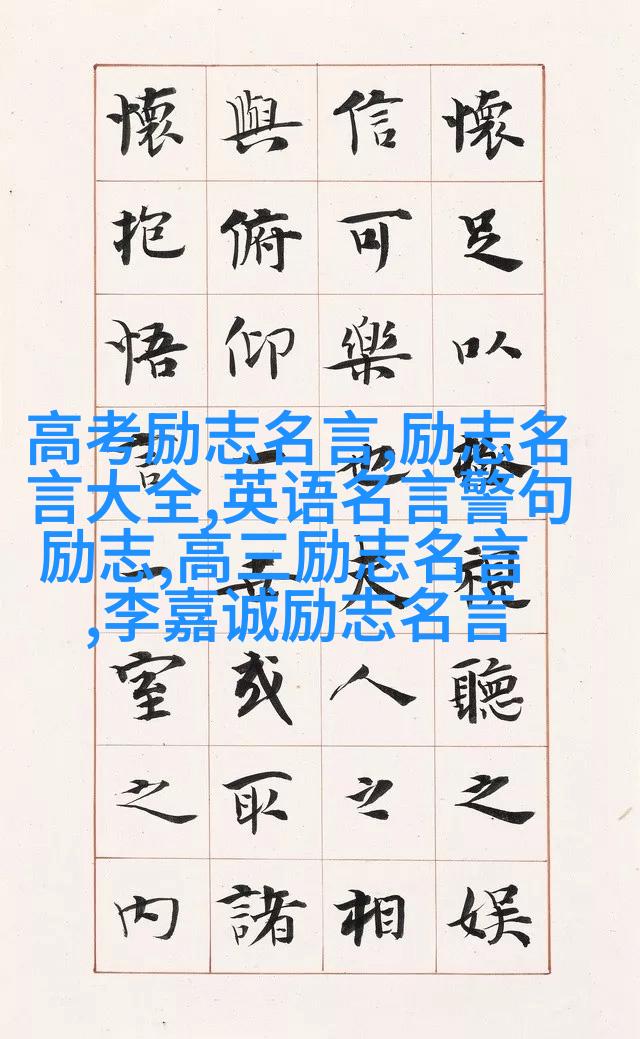 懷足以極視聽之娱
信可樂也夫人之相
與俯仰一世或取諸
懷抱悟言一室之内
高考励志名言,励志名
言大全,英语名言警句
励志,高三励志名言
,李嘉诚励志名言